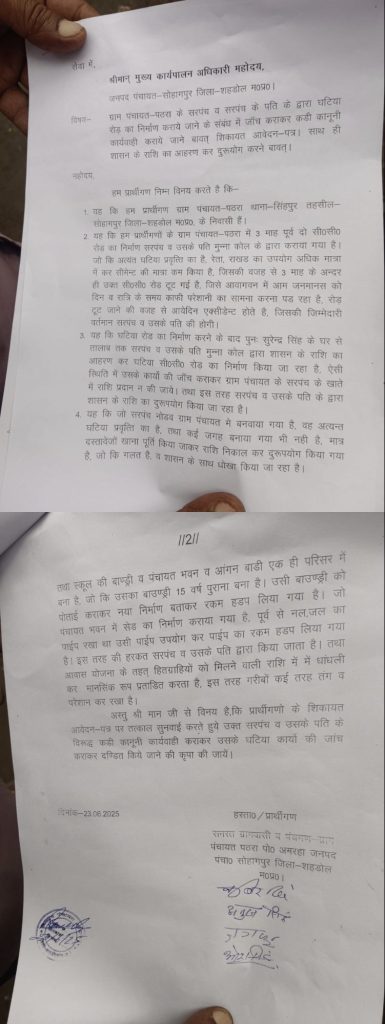 सेवा में,
श्रीमान् मुख्य कार्यपालन अधिकारी महोदय,
जनपद पंचायत–सोहागपुर जिला–शहडोल म०प्र०।
विषय– ग्राम पंचायत–पठरा के सरपंच व सरपंच के पति के द्वारा घटिया
रोड का निर्माण कराये जाने के संबंध में जाँच कराकर कडी कानूनी
कार्यवाही कराये जाने बावत् शिकायत आवेदन–पत्र। साथ ही
शासन के राशि का आहरण कर दुरूयोग करने बावत्।
महोदय,
हम प्रार्थीगण निम्न विनय करते है कि–
1. यह कि हम प्रार्थीगण ग्राम पंचायत–पठरा थाना–सिंहपुर तहसील–
सोहागपुर जिला–शहडोल म०प्र०, के निवासी हैं।
2. यह कि हम प्रार्थीगणों के ग्राम पंचायत–पठरा में 3 माह पूर्व दो सी०सी०
रोड का निर्माण सरपंच व उसके पति मुन्ना कोल द्वारा कराया गया है।
जो कि अत्यंत घटिया प्रवृत्ति का है, रेता, राखड का उपयोग अधिक मात्रा
में कर सीमेन्ट की मात्रा कम किया है, जिसकी वजह से 3 माह के अन्दर
ही उक्त सी०सी० रोड टूट गई है, जिसे आवागमन में आम जनमानस को
दिन व रात्रि के समय काफी परेशानी का सामना करना पड रहा है, रोड
टूट जाने की वजह से आयेदिन एक्सीडेन्ट होते है, जिसकी जिम्मेदारी
वर्तमान सरपंच व उसके पति की होगी।
3. यह कि घटिया रोड का निर्माण करने के बाद पुनः सुरेन्द्र सिंह के घर से
तालाब तक सरपंच व उसके पति मुन्ना कोल द्वारा शासन के राशि का
आहरण कर घटिया सी०सी० रोड का निर्माण किया जा रहा है, ऐसी
स्थिति में उसके कार्यो की जाँच कराकर ग्राम पंचायत के सरपंच के खाते
में राशि प्रदान न की जावे। तथा इस तरह सरपंच व उसके पति के द्वारा
शासन के राशि का दुरूपयोग किया जा रहा है।
4. यह कि जो सरपंच नोडव ग्राम पंचायत मे बनवाया गया है, वह अत्यन्त
घटिया प्रवृत्ति का है, तथा कई जगह बनाया गया भी नही है, मात्र
दस्तावेजों खाना पूर्ति किया जाकर राशि निकाल कर दुरूपयोग किया गया
है, जो कि गलत है, व शासन के साथ धोखा किया जा रहा है।
//2//
तथा स्कूल की बाण्ड्री व पंचायत भवन व आंगन बाडी एक ही परिसर में
बना है, जो कि उसका बाउण्ड्री 15 वर्ष पुराना बना है। उसी बाउण्ड्री को
पोताई कराकर नया निर्माण बताकर रकम हडप लिया गया है। जो
पंचायत भवन में सेड का निर्माण कराया गया है, पूर्व से नल,जल का
पाईप रखा था उसी पाईप उपयोग कर पाईप का रकम हडप लिया गया
है। इस तरह की हरकत सरपंच व उसके पति द्वारा किया जाता है। तथा
आवास योजना के तहत् हितग्राहियों को मिलने वाली राशि में में धांधली
कर मानसिक रूप प्रताडित करता है, इस तरह गरीबों कई तरह तंग व
परेशान कर रखा है।
अस्तु श्री मान जी से विनय है,कि प्रार्थीगणो के शिकायत
आवेदन–पत्र पर तत्काल सुनवाई करते हुये उक्त सरपंच व उसके पति के
विरूद्ध कडी कानूनी कार्यवाही कराकर उसके घटिया कार्यो की जांच
कराकर दण्डित किये जाने की कृपा की जायें।
दिनांक–23.06.2025
हस्ता० / प्रार्थीगण
समस्त ग्रामवासी व पंचगण–ग्राम
पंचायत पठरा पो० अमरहा जनपद
पंचा० सोहागपुर जिला–शहडोल
म०प्र०।